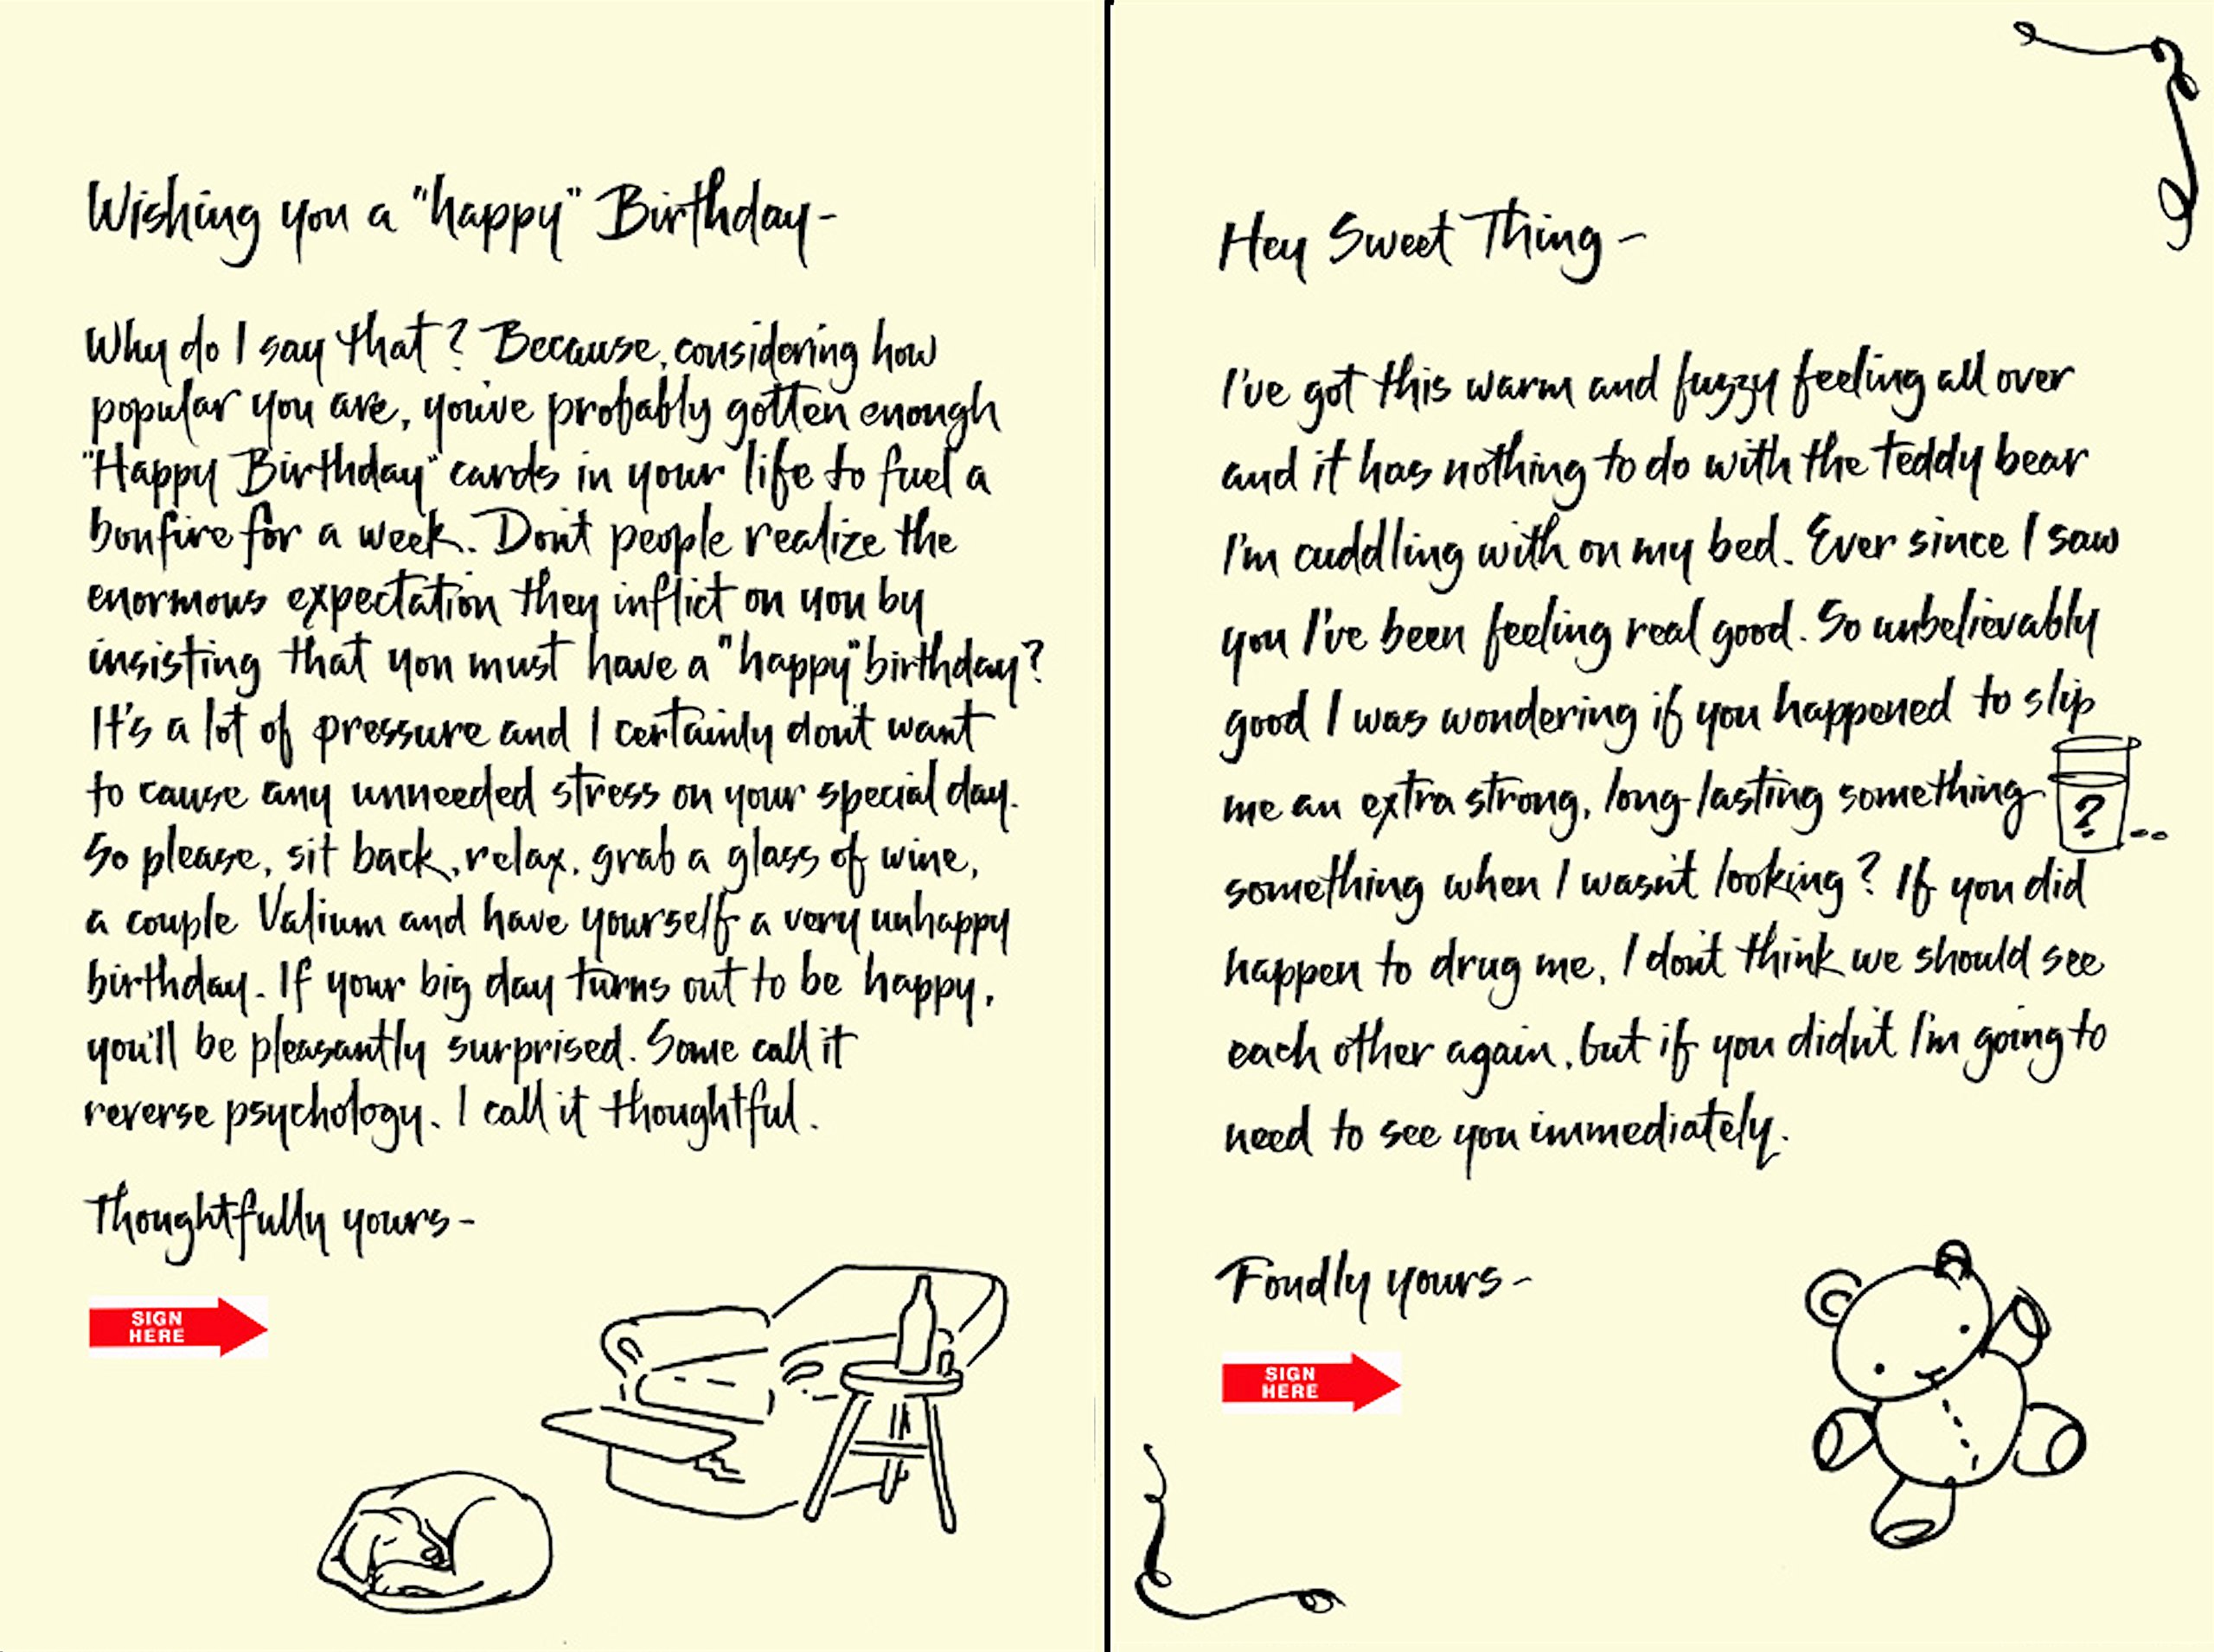 Wishing you a "happy" Birthday-
Why do I say that? Because, considering how
popular you are, you've probably gotten enough
"Happy Birthday" cards in your life to fuel a
bonfire for a week. Don't people realize the
enormous expectation they inflict on you by
insisting that you must have a "happy" birthday?
It's a lot of pressure and I certainly don't want
to cause any unneeded stress on your special day.
So please, sit back, relax, grab a glass of wine,
a couple Valium and have yourself a very unhappy
birthday. If your big day turns out to be happy,
you'll be pleasantly surprised. Some call it
reverse psychology. I call it thoughtful.
Thoughtfully yours-
SIGN
HERE
Hey Sweet Thing-
I've got this warm and fuzzy feeling all over
and it has nothing to do with the teddy bear
I'm cuddling with on my bed. Ever since I saw
you I've been feeling real good. So unbelievably
good I was wondering if you happened to slip
me an extra strong, long-lasting something
?
something when I wasn't looking? If you did
happen to drug me, I don't think we should see
each other again, but if you didn't I'm going to
need to see you immediately.
Fondly yours-
SIGN
HERE